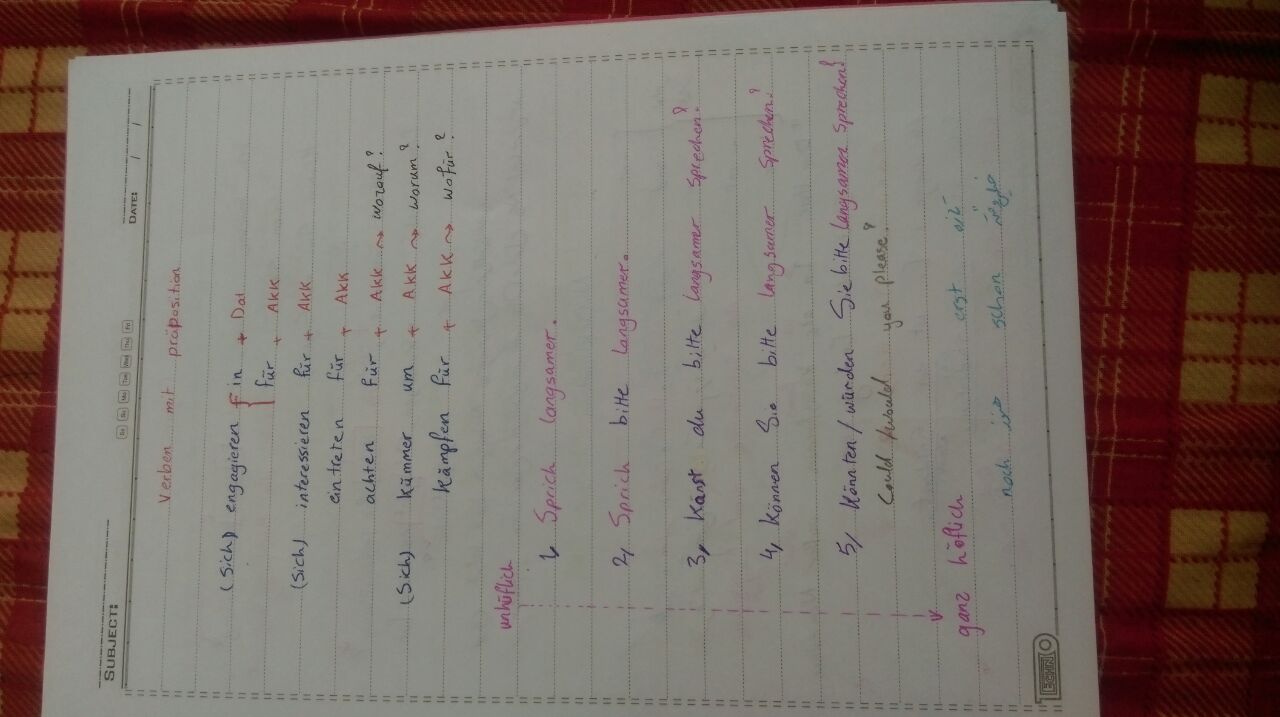 SUBJECT:
DATE: / /
Sa Su Mo Tue Wed Thu Fri
Verben mit präposition
(Sich) engagieren in + Dat
für + AKK
(Sich) interessieren für + AKK
eintreten für + AKK
achten für + AKK → worauf?
(Sich) Kümmer um + AKK → worum?
Kämpfen für + AKK → wofür?
unhöflich
1, Sprich langsamer.
2, Sprich bitte langsamer.
3, Kanst du bitte langsamer sprechen?
4, Können Sie bitte langsamer sprechen?
5, Könnten/würden Sie bitte langsamer sprechen?
Could/would you please?
ganz höflich erst
noch schon